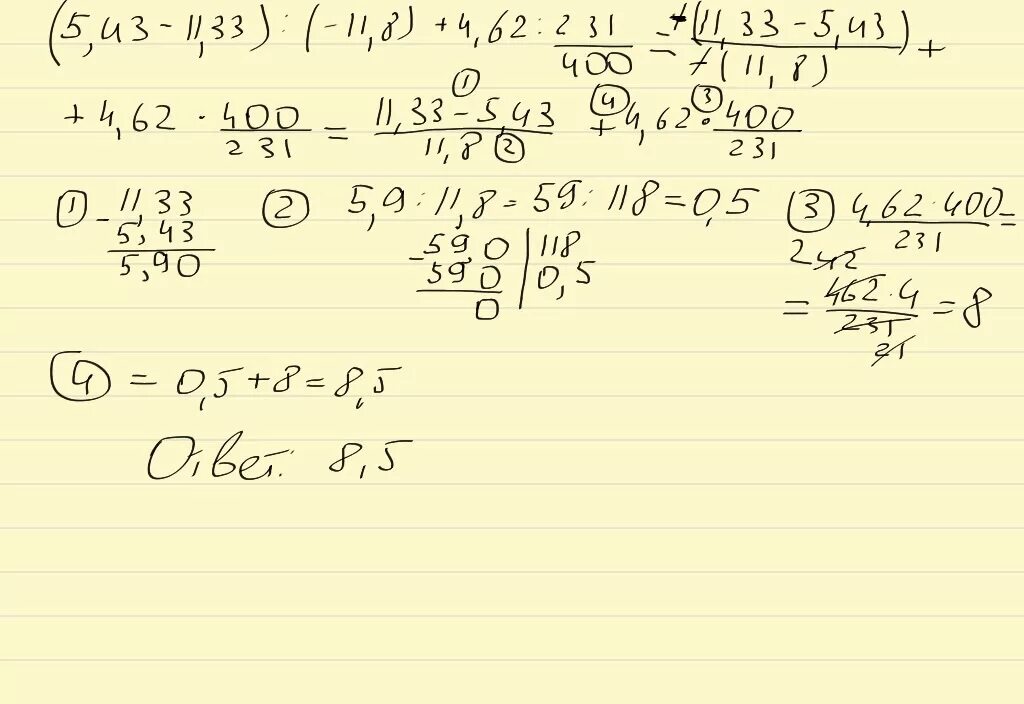 (5,43 - 11,33) : (-11,8) + 4,62 : 231/400 = -(11,33 - 5,43)/-(11,8) +
+ 4,62 · 400/231 = 11,33 - 5,43/11,8 + 4,62 · 400/231
① ② ④ ③
① - 11,33 5,43 5,90
② 5,9 : 11,8 = 59 : 118 = 0,5
- 59,0 | 118
590 | 0,5
0
③ 4,62 · 400/231 =
= 462 · 4/231 = 8
2 42
21
④ = 0,5 + 8 = 8,5
Ответ: 8,5